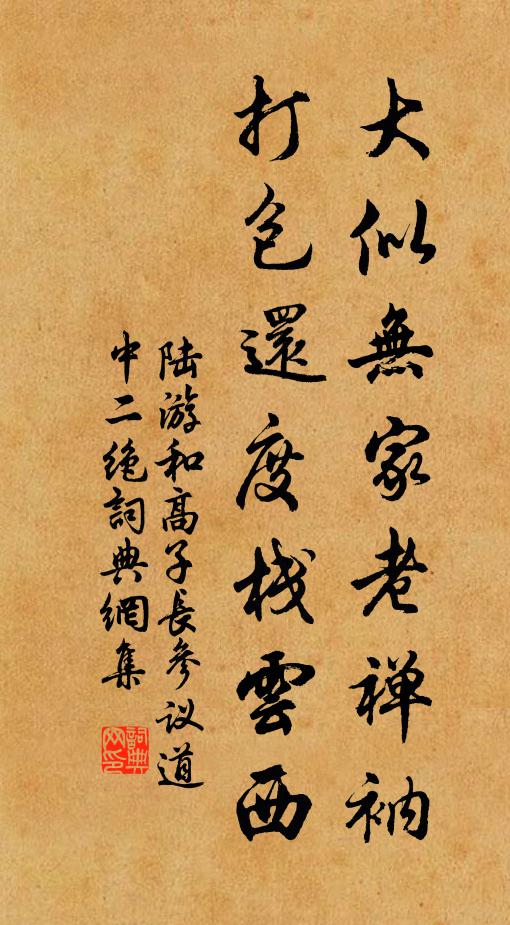 大似無家老禅衲
打包還度栈雲西
陆游和高子長參议道
中二绝詞典網集
詞典网印